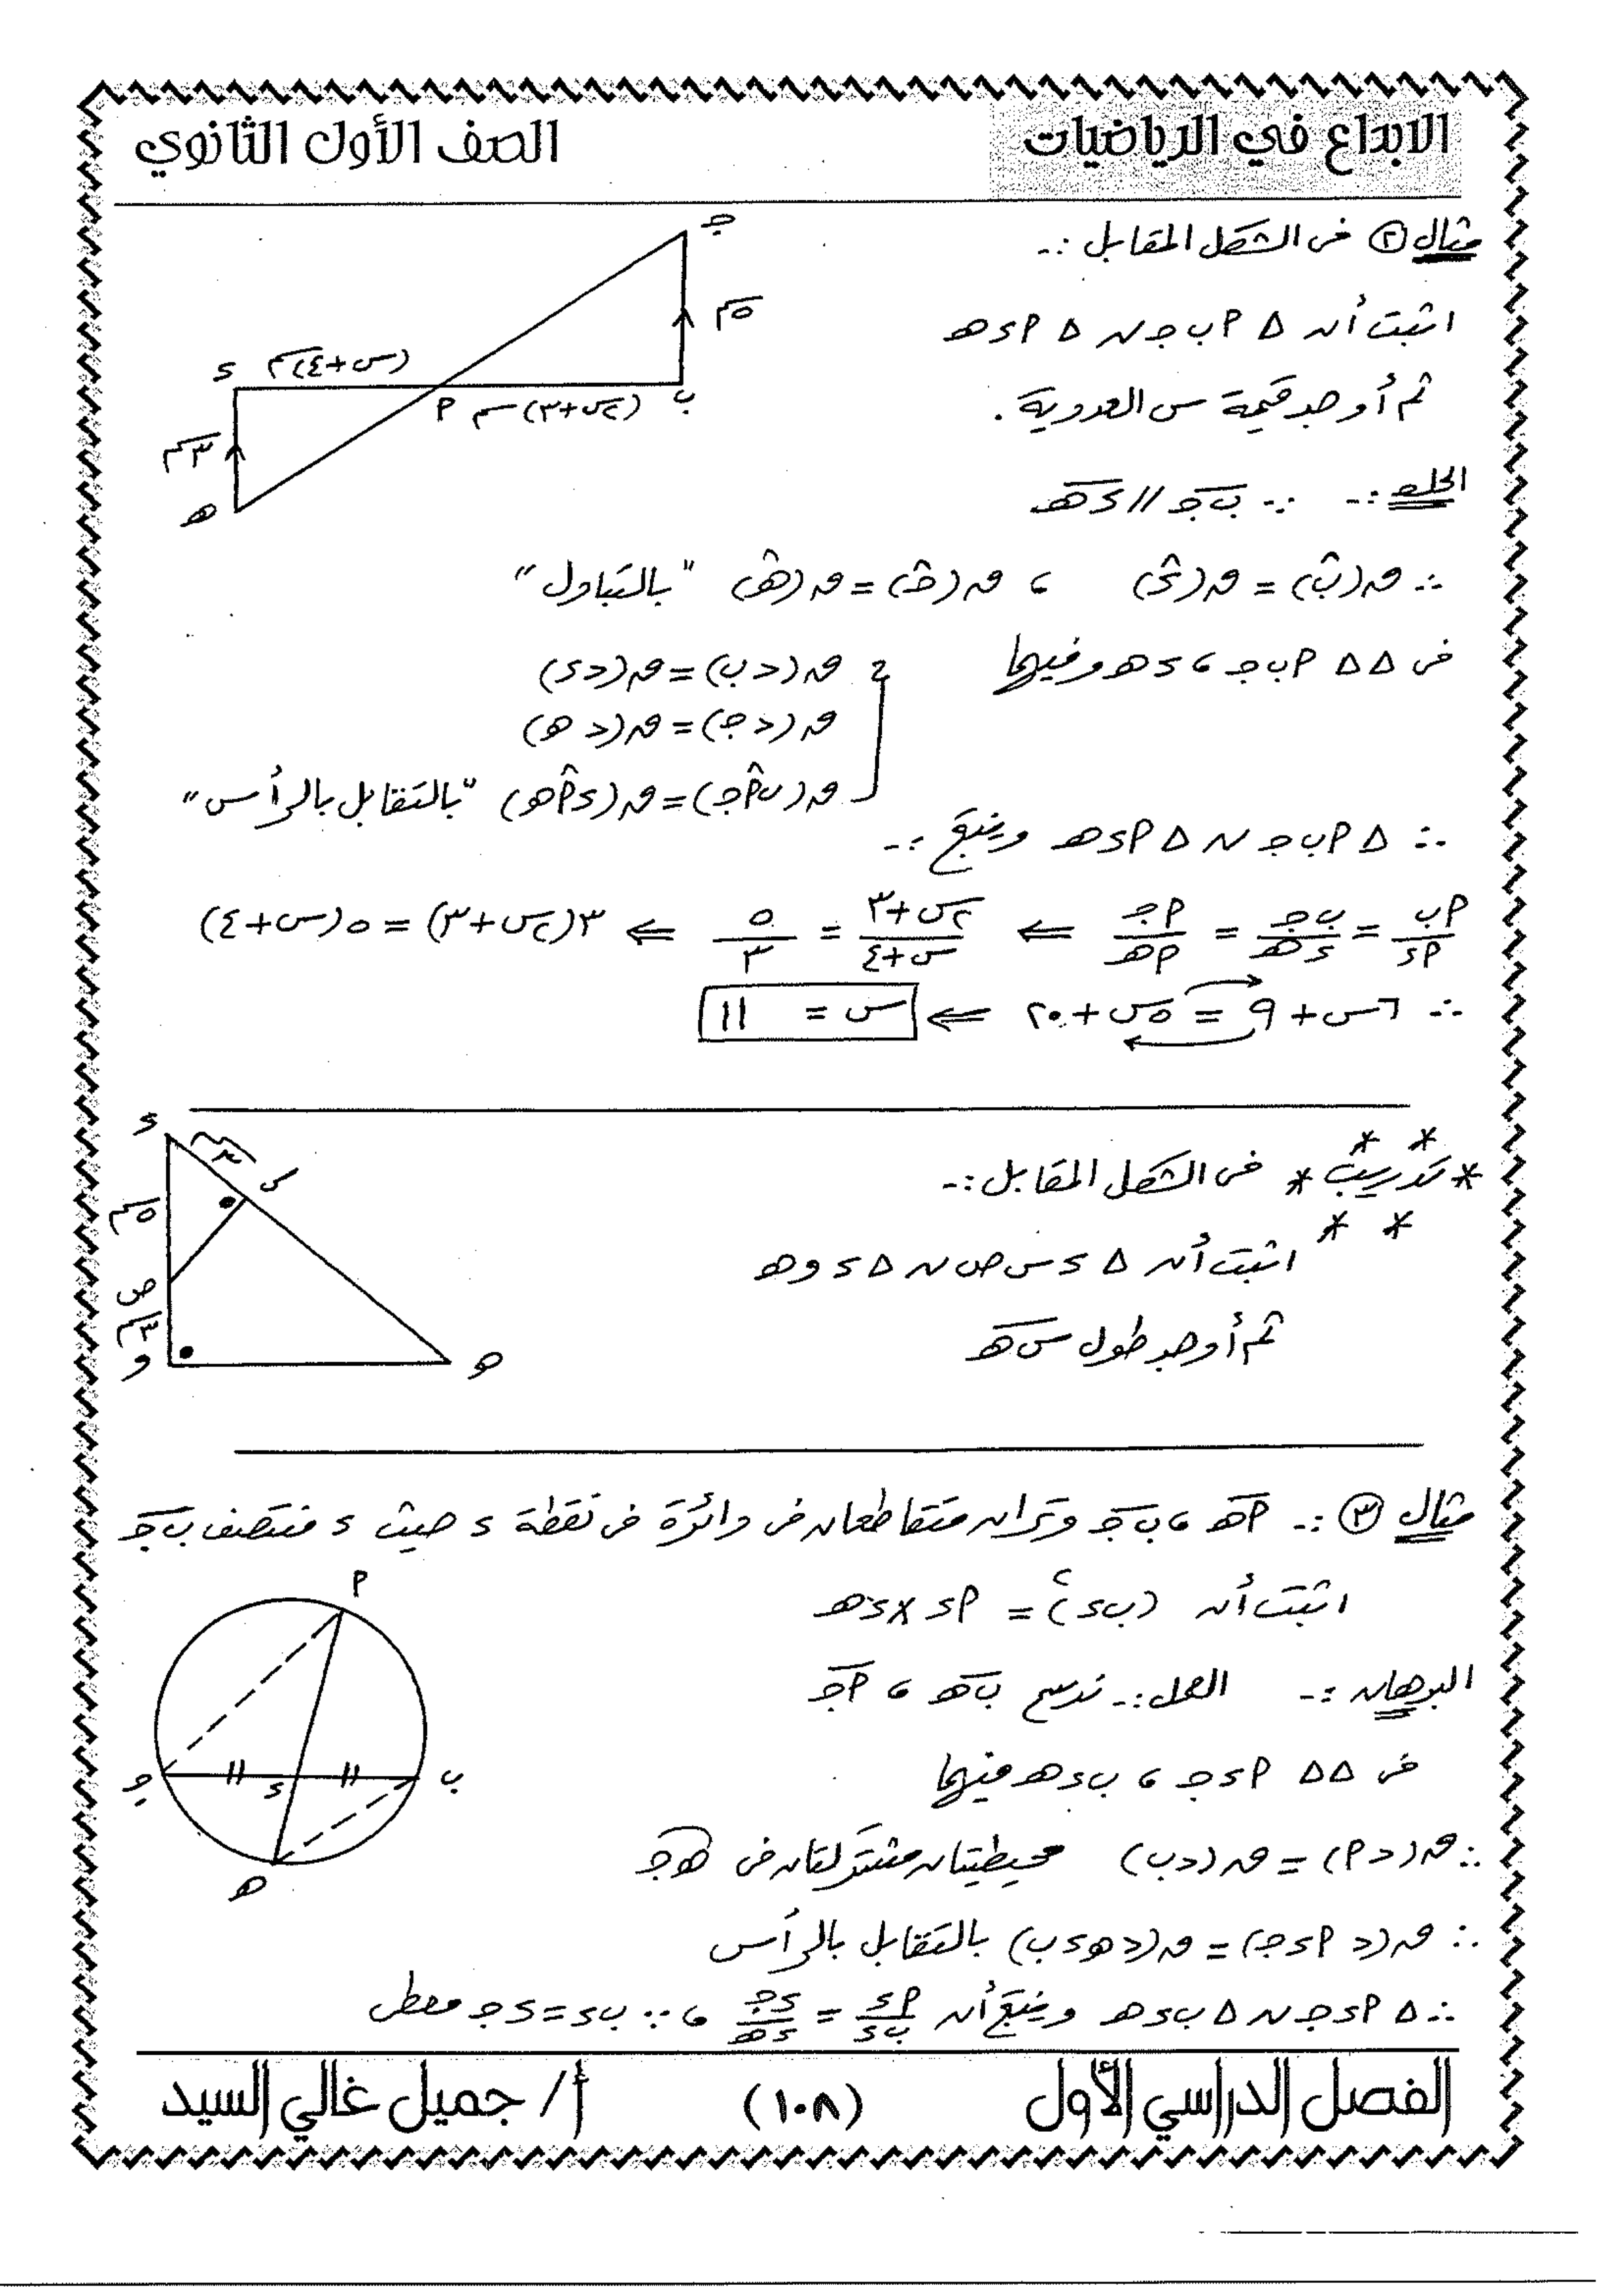 الابداع في الرياضيات
الصف الأول الثانوي
مثال (٢) فى الشكل المقابل :-
اثبت أن Δ أ ب جـ ~ Δ أ د هـ
ثم أوجد قيمة س العددية .
جـ
٥سم
ب
(٢س+٣)سم
أ
(س+٤)سم
د
٣سم
هـ
الحل :- ∵ ب جـ // د هـ
∴ ق(ب̂) = ق(د̂) ، ق(جـ̂) = ق(هـ̂) "بالتبادل"
فى ΔΔ أ ب جـ ، د هـ وفيهما
ق(∠ب) = ق(∠د)
ق(∠جـ) = ق(∠هـ)
ق(ب أ̂ جـ) = ق(د أ̂ هـ) "بالتقابل بالرأس"
∴ Δ أ ب جـ ~ Δ أ د هـ وينتج :-
أب/أد = ب جـ/د هـ = أجـ/أهـ ⇐ (٢س+٣)/(س+٤) = ٥/٣ ⇐ ٣(٢س+٣) = ٥(س+٤)
∴ ٦س + ٩ = ٥س + ٢٠ ⇐ س = ١١
* تدريب * فى الشكل المقابل :-
اثبت أن Δ د س ص ~ Δ د و هـ
ثم أوجد طول س هـ
د
٤سم
س
٥سم
ص
٣سم
و
هـ
مثال (٣) :- أ هـ ، ب جـ وتران متقاطعان فى دائرة فى نقطة د حيث د منتصف ب جـ
اثبت أن (ب د)٢ = أ د × د هـ
البرهان :- العمل :- نرسم ب هـ ، أ جـ
فى ΔΔ أ د جـ ، ب د هـ فيهما
∴ ق(∠أ) = ق(∠ب) محيطيتان مشتركتان فى هـ جـ
∴ ق(∠أ د جـ) = ق(∠هـ د ب) بالتقابل بالرأس
∴ Δ أ د جـ ~ Δ ب د هـ وينتج أن أد/ب د = د جـ/د هـ ، ∵ ب د = د جـ معطى
أ
جـ
د
ب
هـ
الفصل الدراسي الأول
(١٠٨)
أ/ جميل غالي السيد